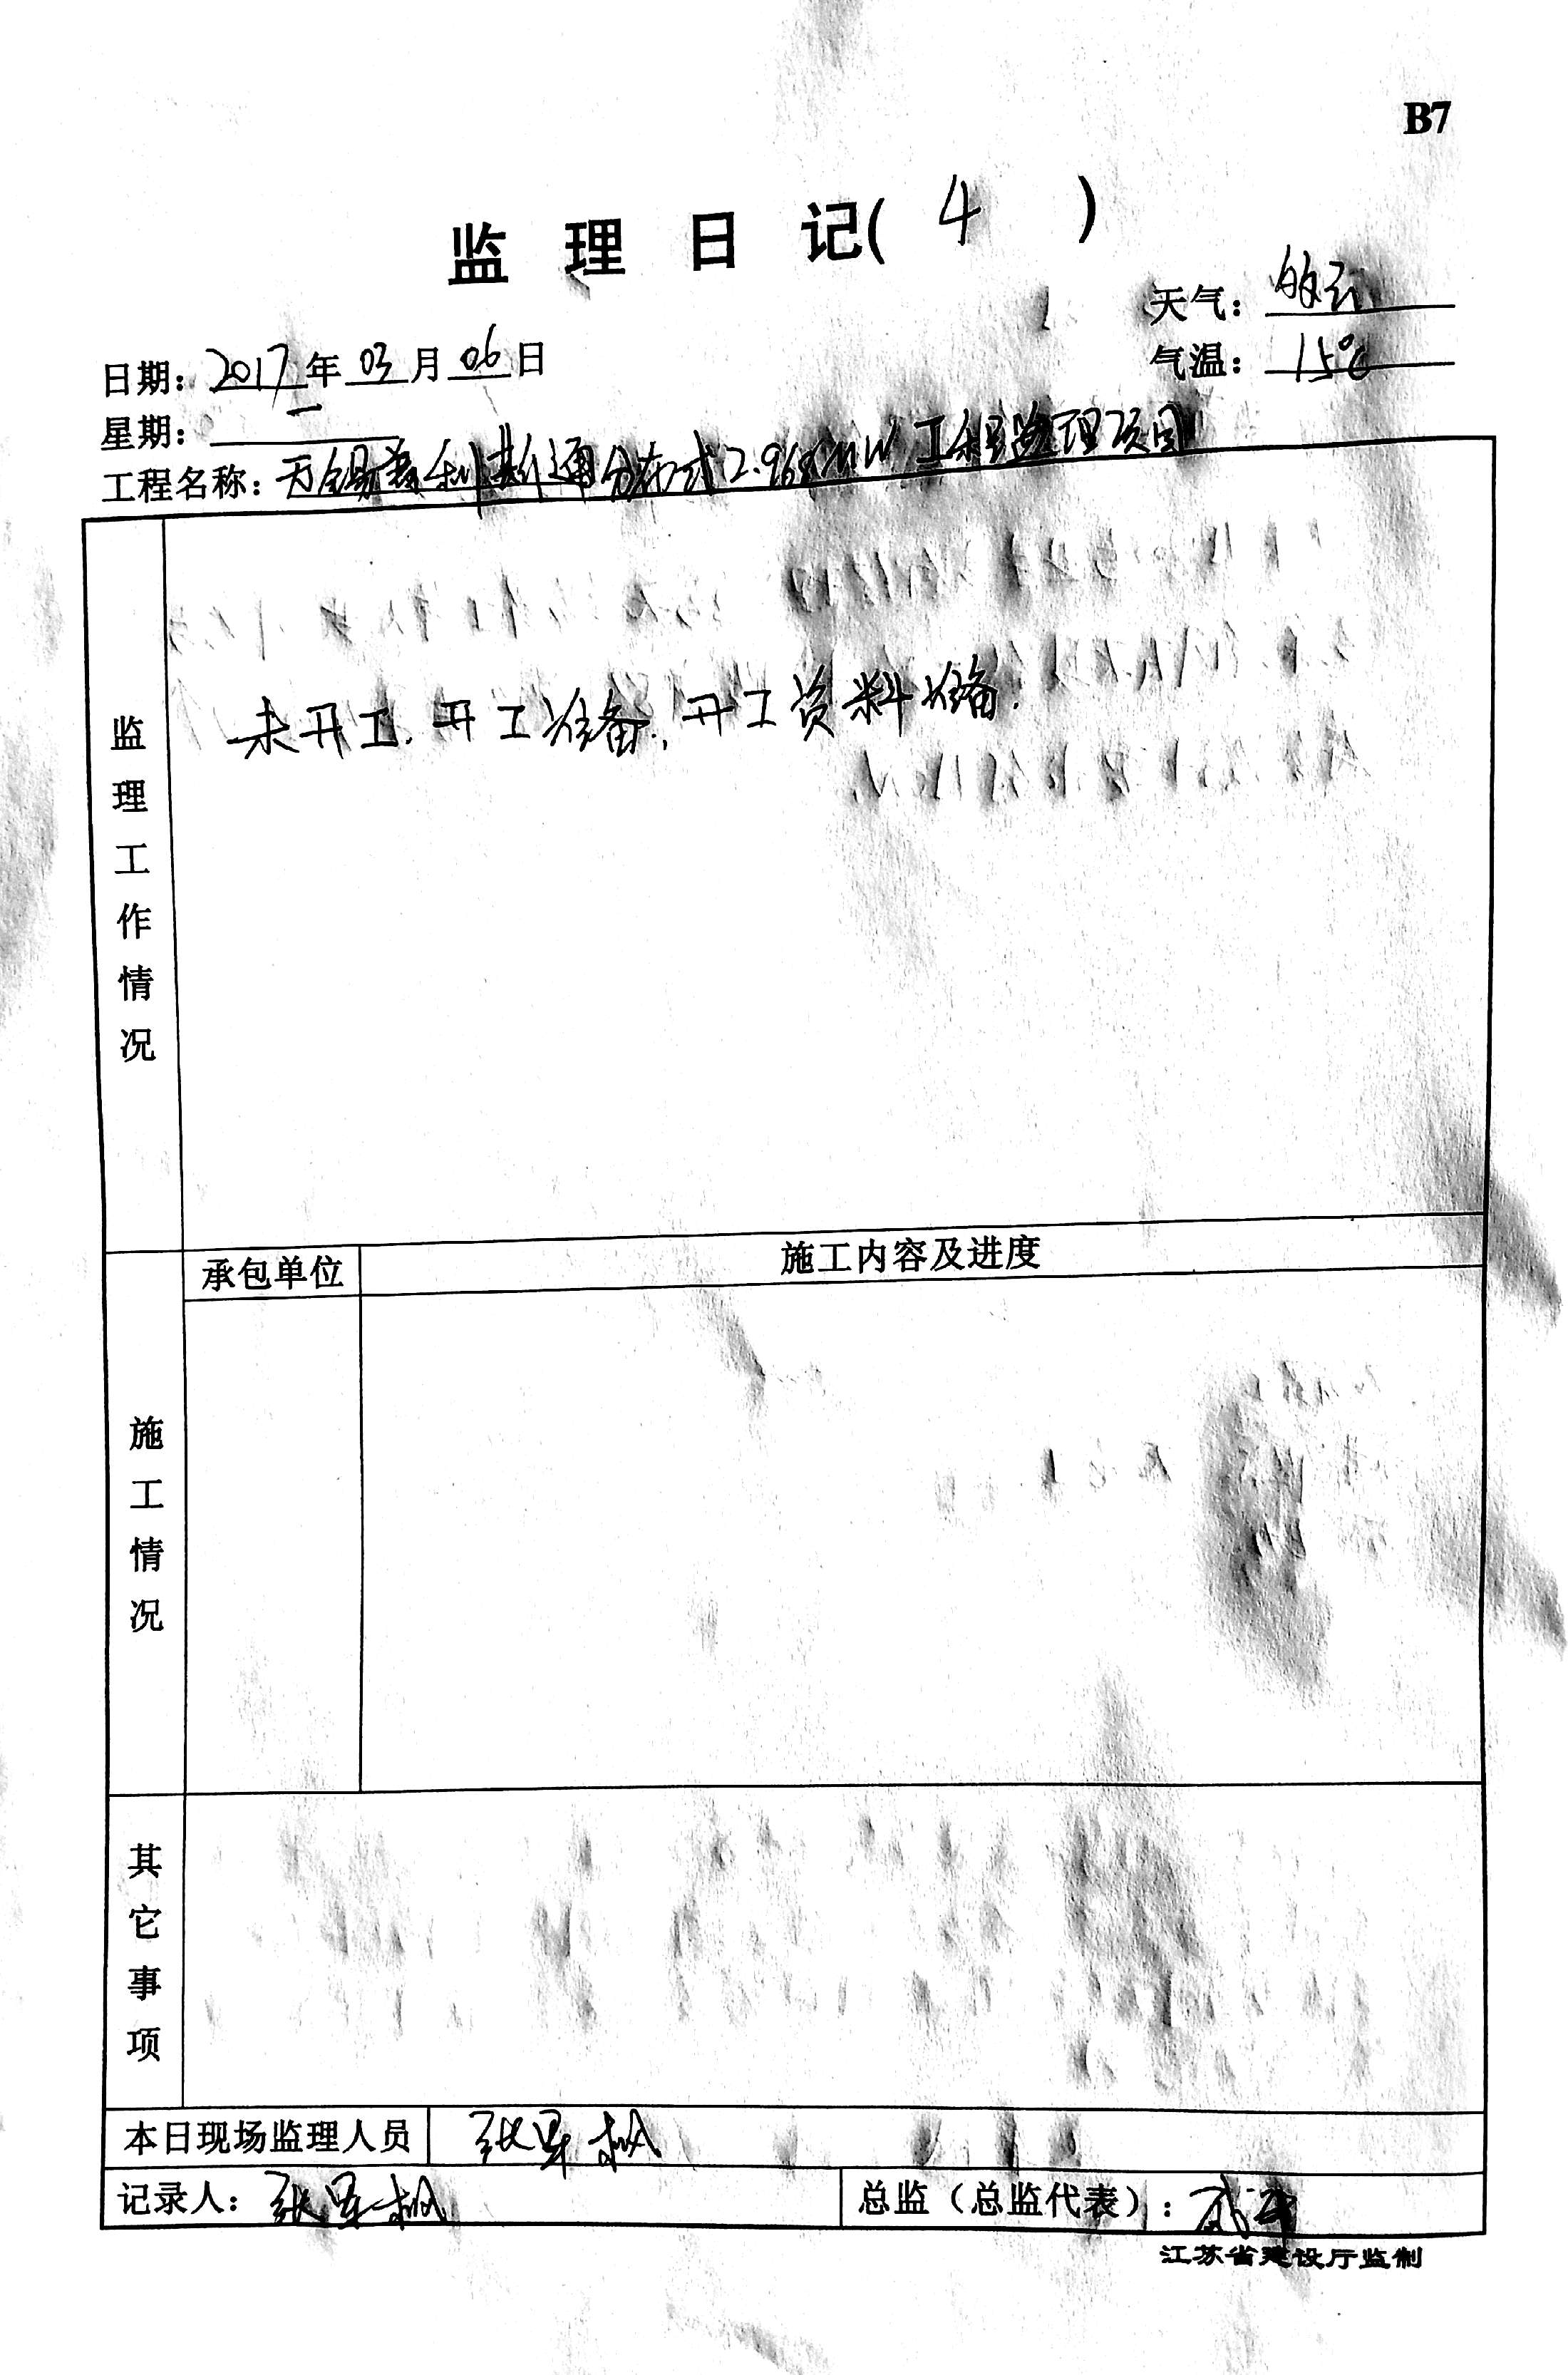 B7
监理日记(4)
天气：
日期：2017年03月06日
气温：15℃
星期：一
工程名称：无锡森利斯通分布式2.968MW工程监理项目
监理工作情况
未开工.开工准备.开工资料准备.
承包单位
施工内容及进度
施工情况
其它事项
本日现场监理人员 张星枫
记录人：张星枫
总监（总监代表）：
江苏省建设厅监制